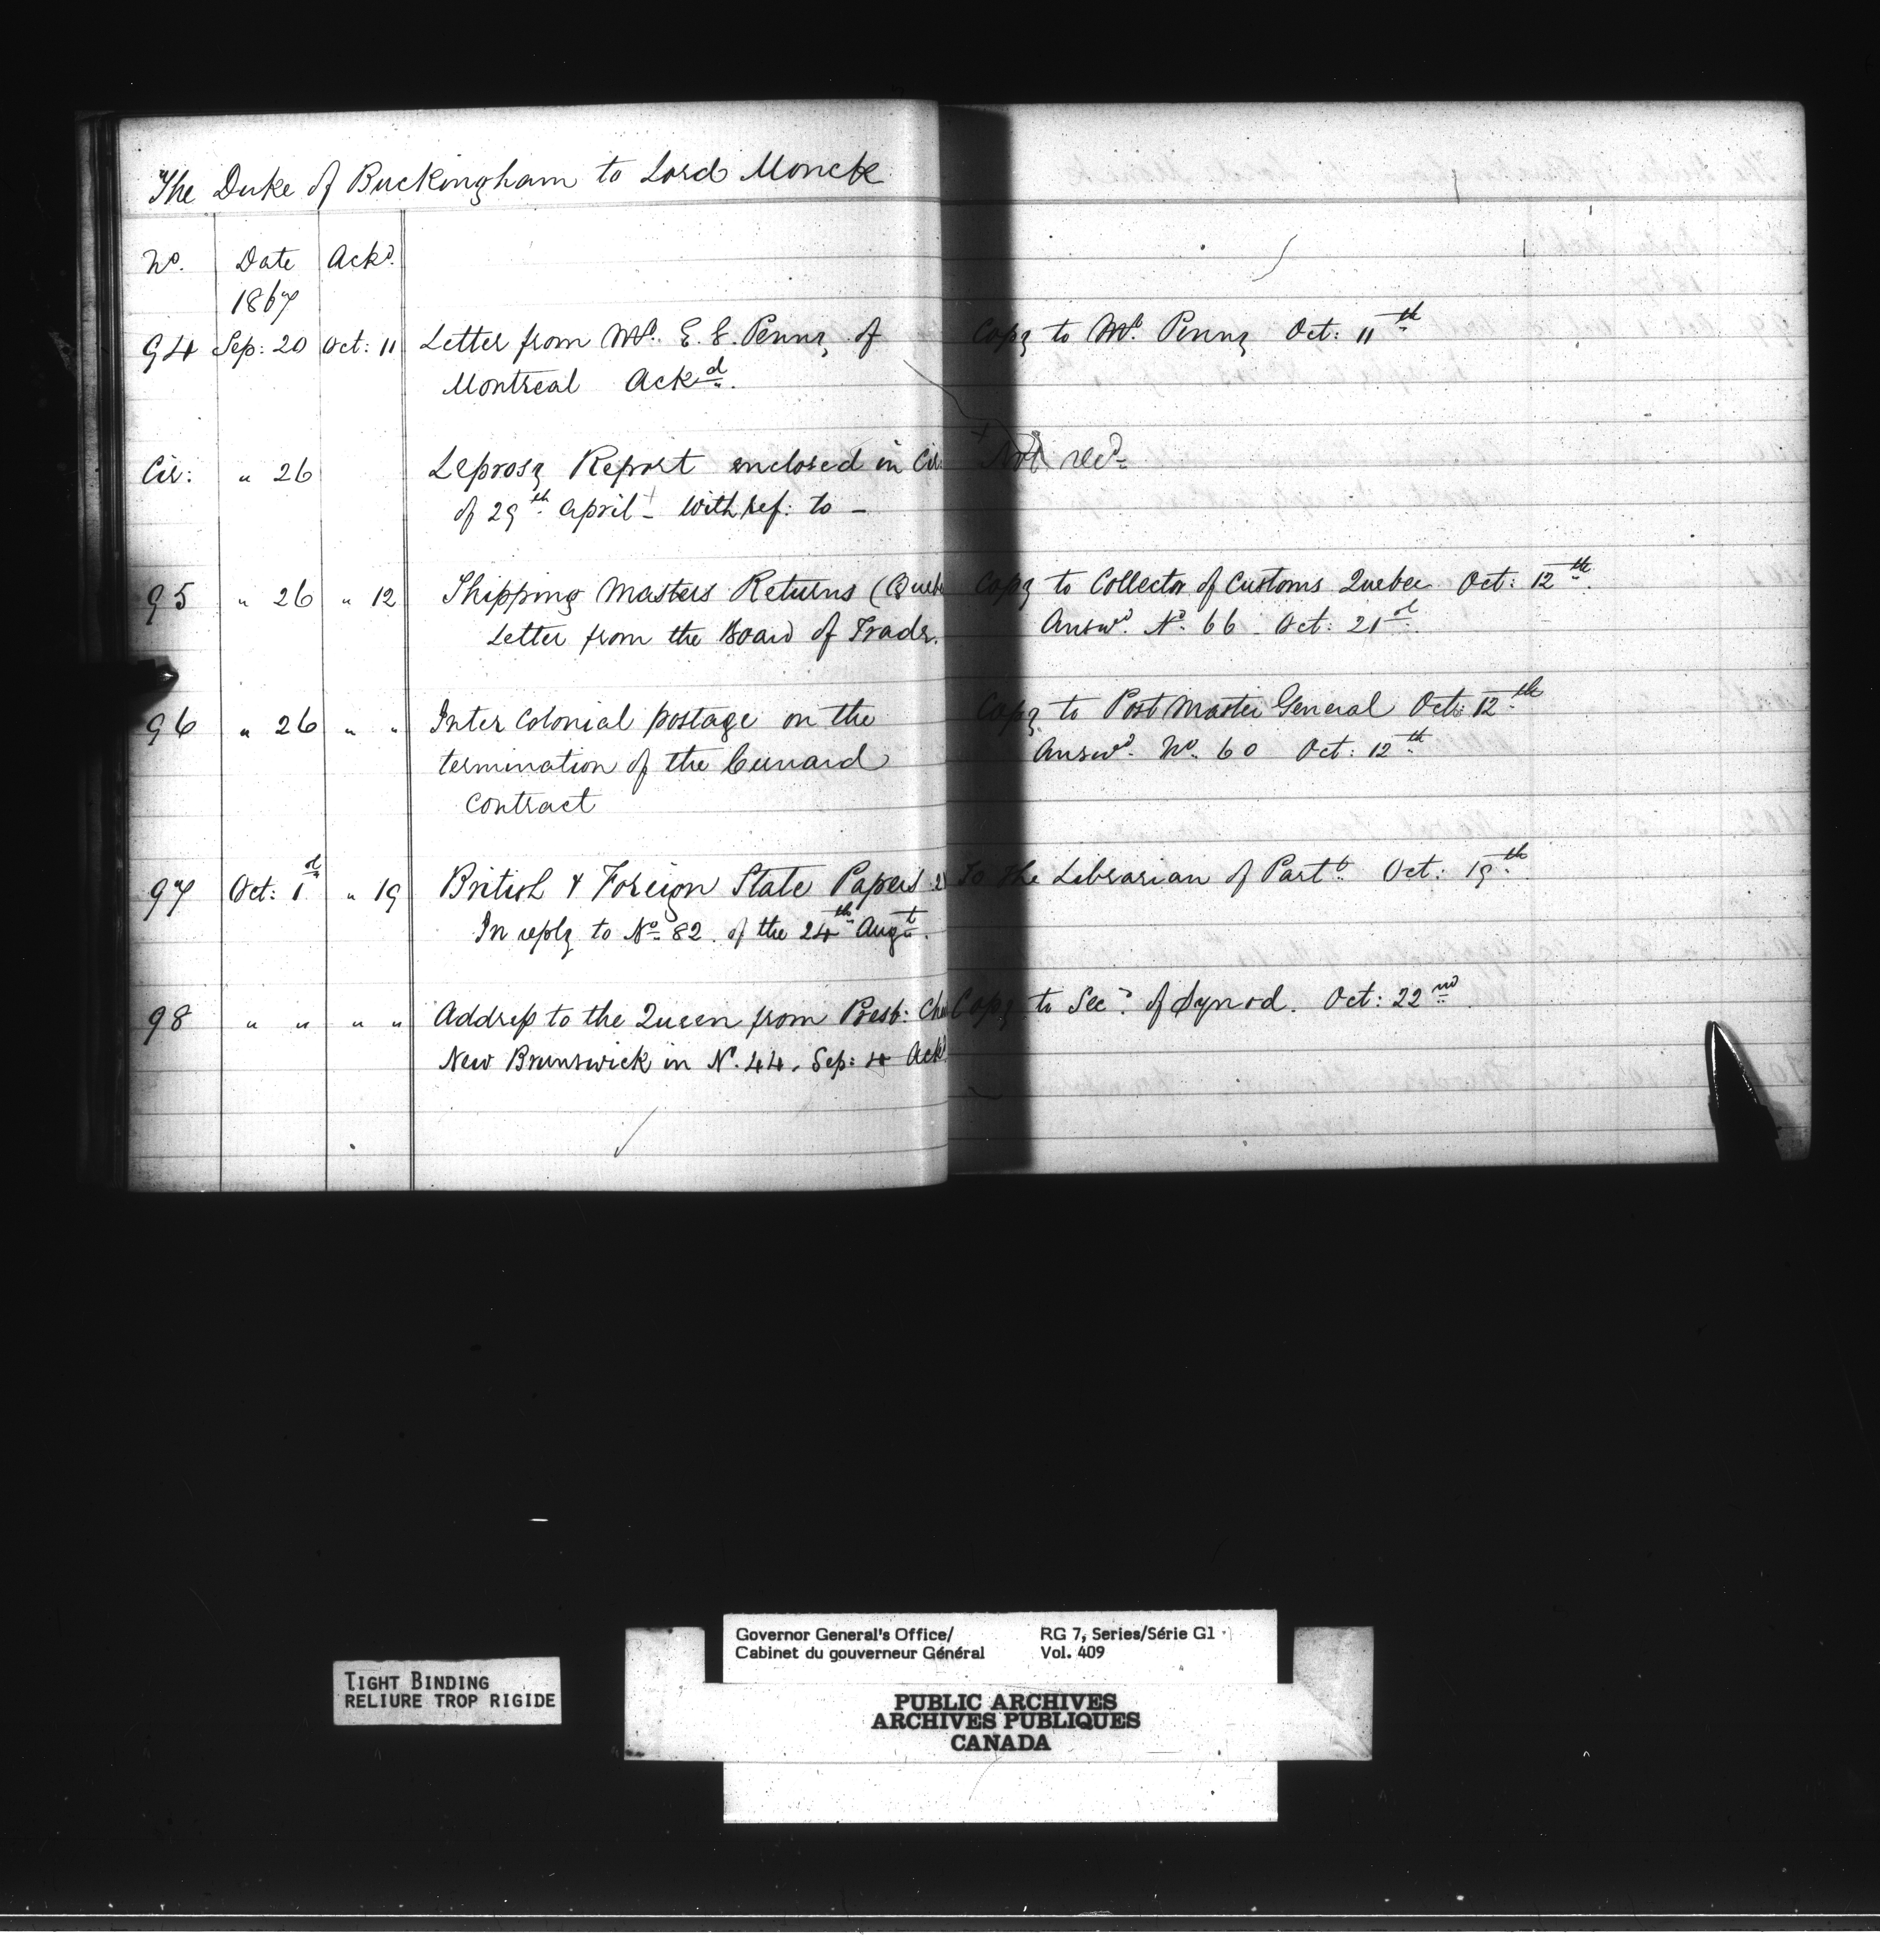 The Duke of Buckingham to Lord Monck
No. Date Ackd.
1867
94 Sep: 20 Oct: 11 Letter from Mr. E. G. Penny of Copy to Mr. Penny Oct: 11th
Montreal Ackd.
Cir: " 26 Leprosy Report enclosed in Cir: + Not recd
of 29th April + With ref: to —
95 " 26 " 12 Shipping Masters Returns (Queb Copy to Collector of Customs Quebec Oct: 12th.
Letter from the Board of Trade. Answd. No. 66 Oct: 21st.
96 " 26 " " Inter Colonial postage on the Copy to Post Master General Oct: 12th
termination of the Cunard Answd. No. 60 Oct: 12th
contract
97 Oct: 1st " 19 British & Foreign State Papers To the Librarian of Parlt. Oct: 19th
In reply to No. 82 of the 24th Augt.
98 " " " " Address to the Queen from Presb: Chu Copy to Secy of Synod. Oct: 22nd.
New Brunswick in No. 44. Sep: Ackd
Governor General's Office/ RG 7, Series/Série G1
Cabinet du gouverneur Général Vol. 409
TIGHT BINDING
RELIURE TROP RIGIDE
PUBLIC ARCHIVES
ARCHIVES PUBLIQUES
CANADA